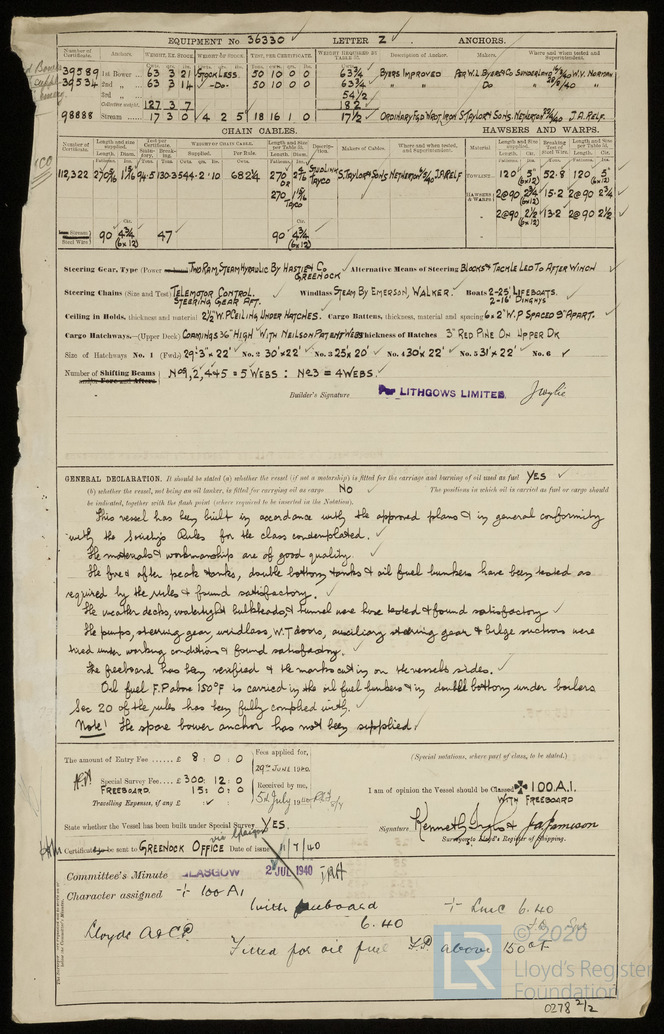 EQUIPMENT No 36330 LETTER Z ANCHORS.
Number of Certificate. Anchors. WEIGHT, EX. STOCK WEIGHT OF STOCK. TEST, PER CERTIFICATE. WEIGHT REQUIRED BY TABLE 31. Description of Anchor. Makers. Where and when tested and Superintendent.
39589 1st Bower 63 3 21 STOCKLESS. 50 10 0 0 63¾ BYERS IMPROVED PER W.L BYERS & CO SUNDERLAND W.V. NORMAN
39534 2nd 63 3 14 -Do- 50 10 0 0 63¾ Do
3rd 54½
Collective weight 127 3 7 182
98888 Stream 17 3 0 4 2 5 18 16 1 0 17½ ORDINARY F&D WROT. IRON S TAYLOR & SONS, NETHERTON J.A. RELF.
CHAIN CABLES. HAWSERS AND WARPS.
112,322 270 94·5 130·3 544·2·10 682¼ 270 STUDLINK TAYCO S. TAYLOR & SONS NETHERTON J.A RELF TOWLINE 120 5" (6x12) 52·8 120 5" (6x12)
OR 270 TAYCO HAWSERS & WARPS 2@90 2¾ (6x12) 15·2 2@90 2¾
2@90 2½ (6x12) 13·2 2@90 2½
Stream Steel Wire 90 4¾ (6x12) 47 90 4¾ (6x12)
Steering Gear, Type (Power TWO RAM, STEAM HYDRAULIC BY HASTIE & CO GREENOCK Alternative Means of Steering BLOCKS & TACKLE LED TO AFTER WINCH
Steering Chains (Size and Test) TELEMOTOR CONTROL. STEERING GEAR AFT. Windlass STEAM BY EMERSON, WALKER. Boats 2-25' LIFEBOATS. 2-16' DINGHYS
Ceiling in Holds, thickness and material 2½" W.P CEILING UNDER HATCHES. Cargo Battens, thickness, material and spacing 6 x 2" W.P SPACED 9" APART.
Cargo Hatchways.—(Upper Deck) COAMINGS 36" HIGH WITH NEILSON PATENT WEBS Thickness of Hatches 3" RED PINE ON UPPER DK
Size of Hatchways No. 1 (Fwd.) 29'·3" x 22' No. 2 30' x 22' No. 3 25' x 20' No. 4 30' x 22' No. 5 31' x 22' No. 6
Number of Shifting Beams and/or Fore and Afters NOS 1, 2, 4 & 5 = 5 WEBS : NO 3 = 4 WEBS.
Builder's Signature Per LITHGOWS LIMITED. J Wylie
GENERAL DECLARATION. It should be stated (a) whether the vessel (if not a motorship) is fitted for the carriage and burning of oil used as fuel YES
(b) whether the vessel, not being an oil tanker, is fitted for carrying oil as cargo NO The positions in which oil is carried as fuel or cargo should
be indicated, together with the flash point (where required to be inserted in the Notation).
This vessel has been built in accordance with the approved plans & in general conformity
with the Society's Rules for the class contemplated.
The materials & workmanship are of good quality.
The fore & after peak tanks, double bottom tanks & oil fuel bunkers have been tested as
required by the rules & found satisfactory.
The weather decks, watertight bulkheads, & tunnel were hose tested & found satisfactory
The pumps, steering gear, windlass, W.T doors, auxiliary steering gear & bilge suctions were
tried under working conditions & found satisfactory.
The freeboard has been verified & the marks cut in on the vessels sides.
Oil fuel F.P above 150°F is carried in the oil fuel bunkers & in double bottom under boilers
Sec 20 of the rules has been fully complied with.
Note! The spare bower anchor has not been supplied.
The amount of Entry Fee ...... £ 8 : 0 : 0 Fees applied for, 29TH JUNE 1940. (Special notations, where part of class, to be stated.)
Special Survey Fee... £ 300 : 12 : 0 Received by me,
FREEBOARD. 15 : 0 : 0 5th July 1940
Travelling Expenses, if any £
I am of opinion the Vessel should be Classed ✠ 100 A.1. WITH FREEBOARD
State whether the Vessel has been built under Special Survey YES.
Signature Kenneth J A Jamieson
Surveyors to Lloyd's Register of Shipping.
Certificate to be sent to GREENOCK OFFICE via Glasgow Date of issue 11/7/40
Committee's Minute GLASGOW 2 JUL 1940
Character assigned + 100 A1
with freeboard + LMC 6.40
6.40
Lloyds A & C.P.
Fitted for oil fuel F.P. above 150°F
LR © 2020
Lloyd's Register
Foundation
0278 2/2